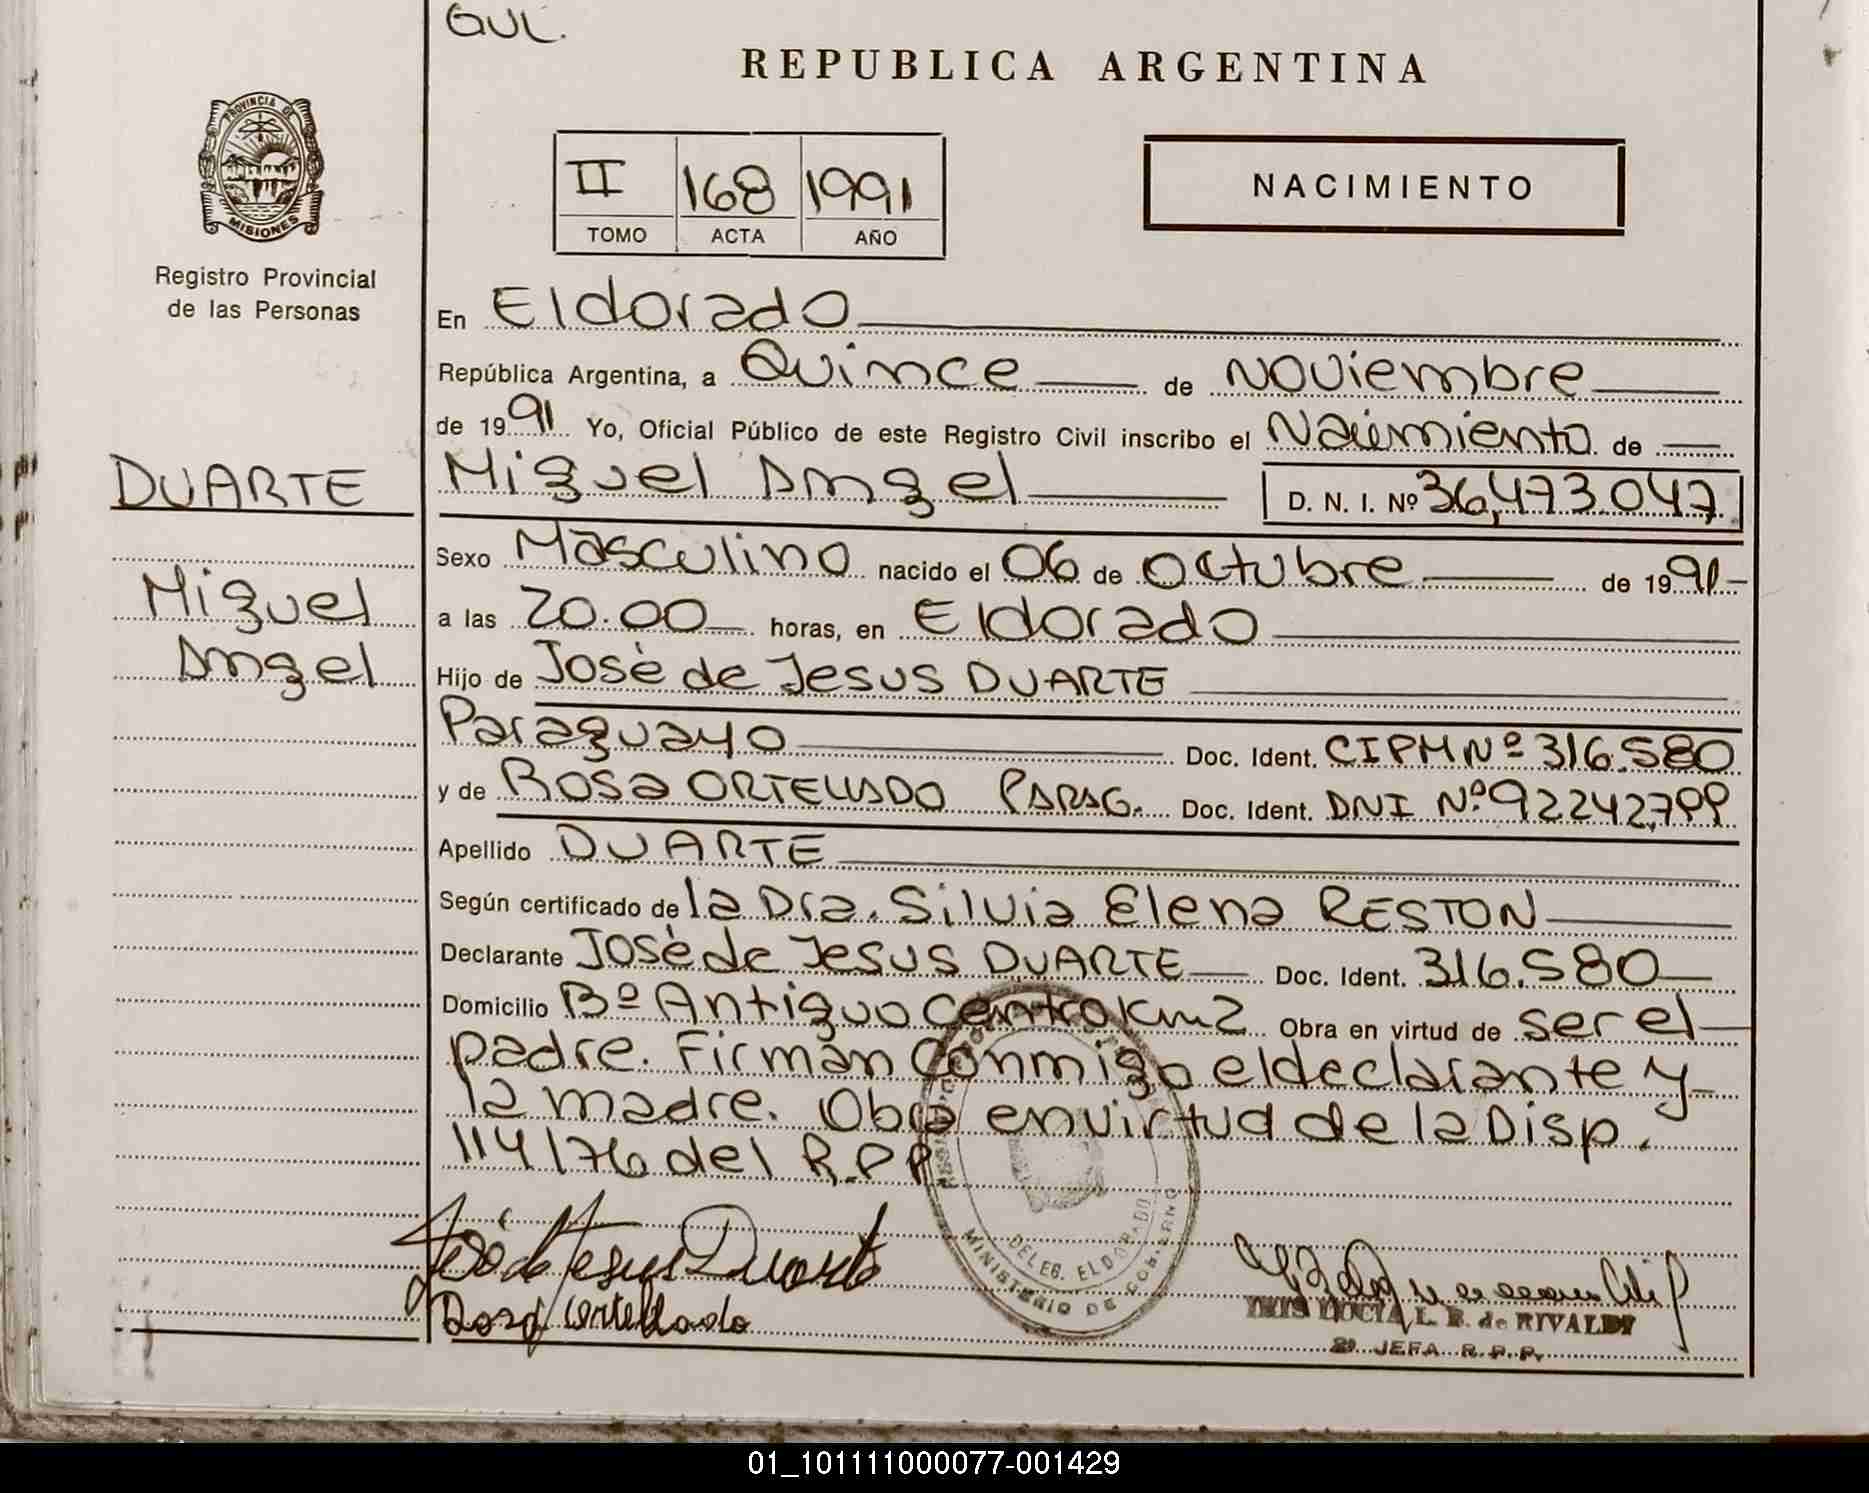 GUL.
REPUBLICA ARGENTINA
PROVINCIA DE
MISIONES
Registro Provincial
de las Personas
II 168 1991
TOMO ACTA AÑO
NACIMIENTO
En Eldorado
República Argentina, a Quince de Noviembre
de 1991 Yo, Oficial Público de este Registro Civil inscribo el Nacimiento de
DUARTE
Miguel Angel
Miguel Angel D. N. I. Nº 36,473.047
Sexo Masculino nacido el 06 de Octubre de 1991
a las 20.00 horas, en Eldorado
Hijo de José de Jesus DUARTE
Paraguayo Doc. Ident. CIPM Nº 316.580
y de Rosa ORTELLADO PARAG. Doc. Ident. DNI Nº
Apellido DUARTE
Según certificado de la Dra. Silvia Elena RESTON
Declarante José de Jesus DUARTE Doc. Ident. 316.580
Domicilio Bº Antiguo Centro Km 2 Obra en virtud de ser el
padre. Firman Conmigo el declarante y
la madre. Obra en virtud de la Disp.
114/76 del R.P.P.
José de Jesus Duarte
Rosa Ortellado
DELEG. ELDORADO
MINISTERIO DE GOBIERNO
L. B. de RIVALDI
JEFA R.P.P.
01_101111000077-001429